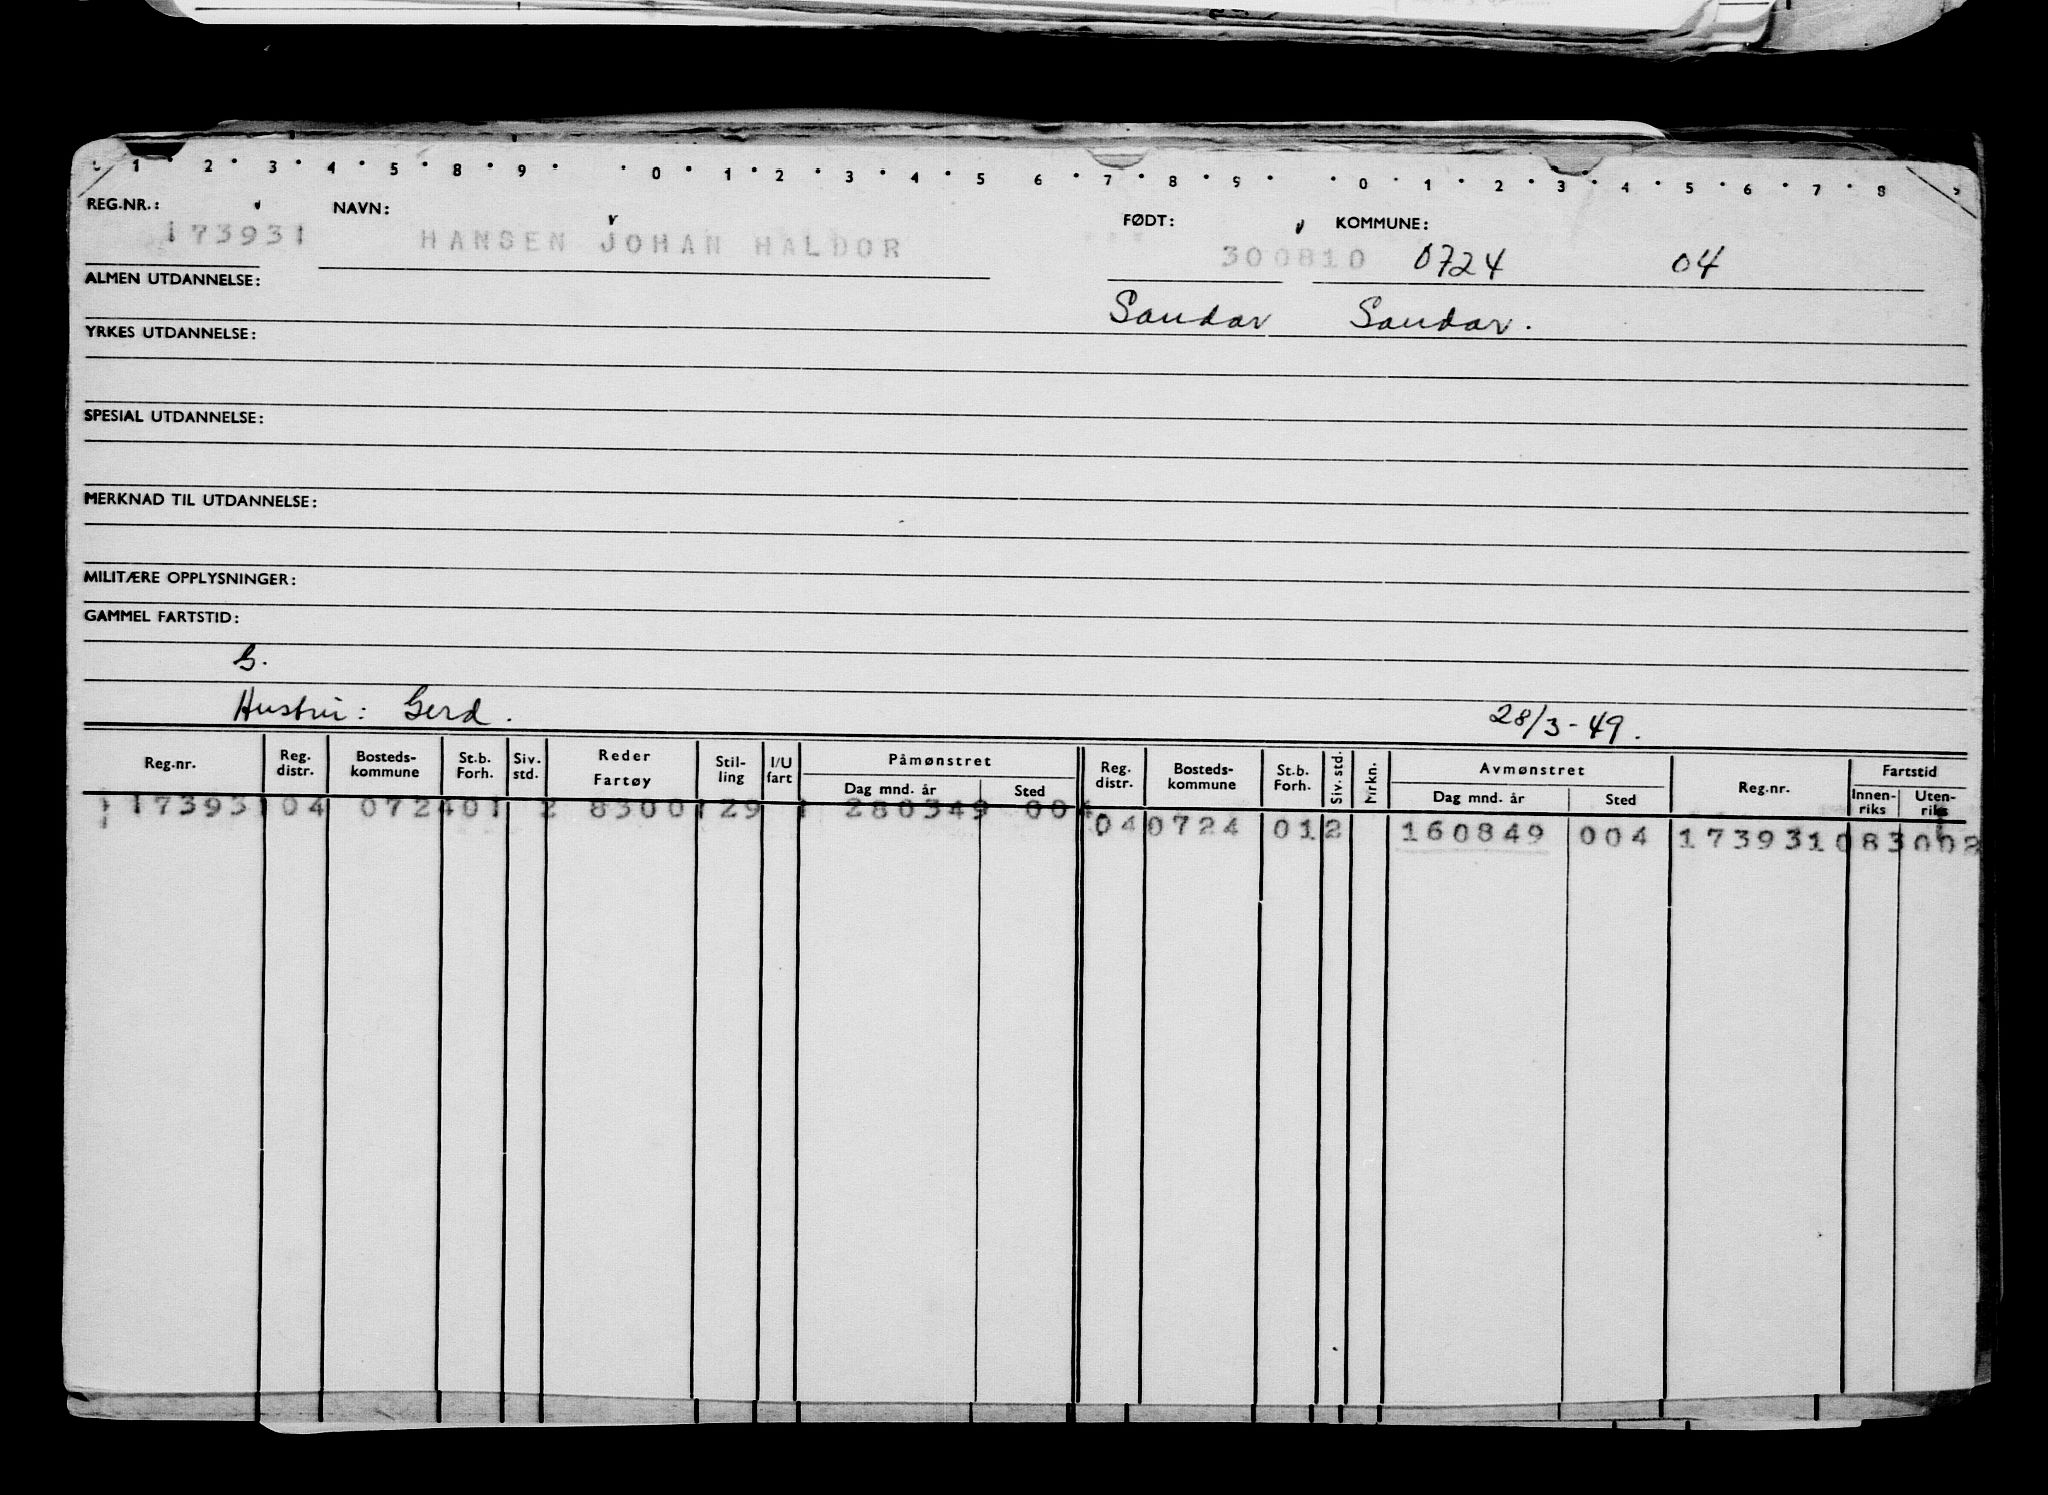 1 2 3 4 5 8 9 0 1 2 3 4 5 6 7 8 9 0 1 2 3 4 5 6 7 8 9
REG.NR.: NAVN: FØDT: KOMMUNE:
173931 HANSEN JOHAN HALDOR 300810 0724 04
ALMEN UTDANNELSE:
Sandar Sandar.
YRKES UTDANNELSE:
SPESIAL UTDANNELSE:
MERKNAD TIL UTDANNELSE:
MILITÆRE OPPLYSNINGER:
GAMMEL FARTSTID:
G.
Hustru: Gerd. 28/3-49.
Reg.nr. Reg. distr. Bosteds-kommune St.b. Forh. Siv. std. Reder Fartøy Stil-ling I/U fart Påmønstret Dag mnd. år Sted Reg. distr. Bosteds-kommune St.b. Forh. Siv. std. Mrkn. Avmønstret Dag mnd. år Sted Reg.nr. Fartstid Innen-riks Uten-riks
173931 04 0724 01 2 8300 129 1 280349 004
04 0724 01 2 160849 004 173931 083002